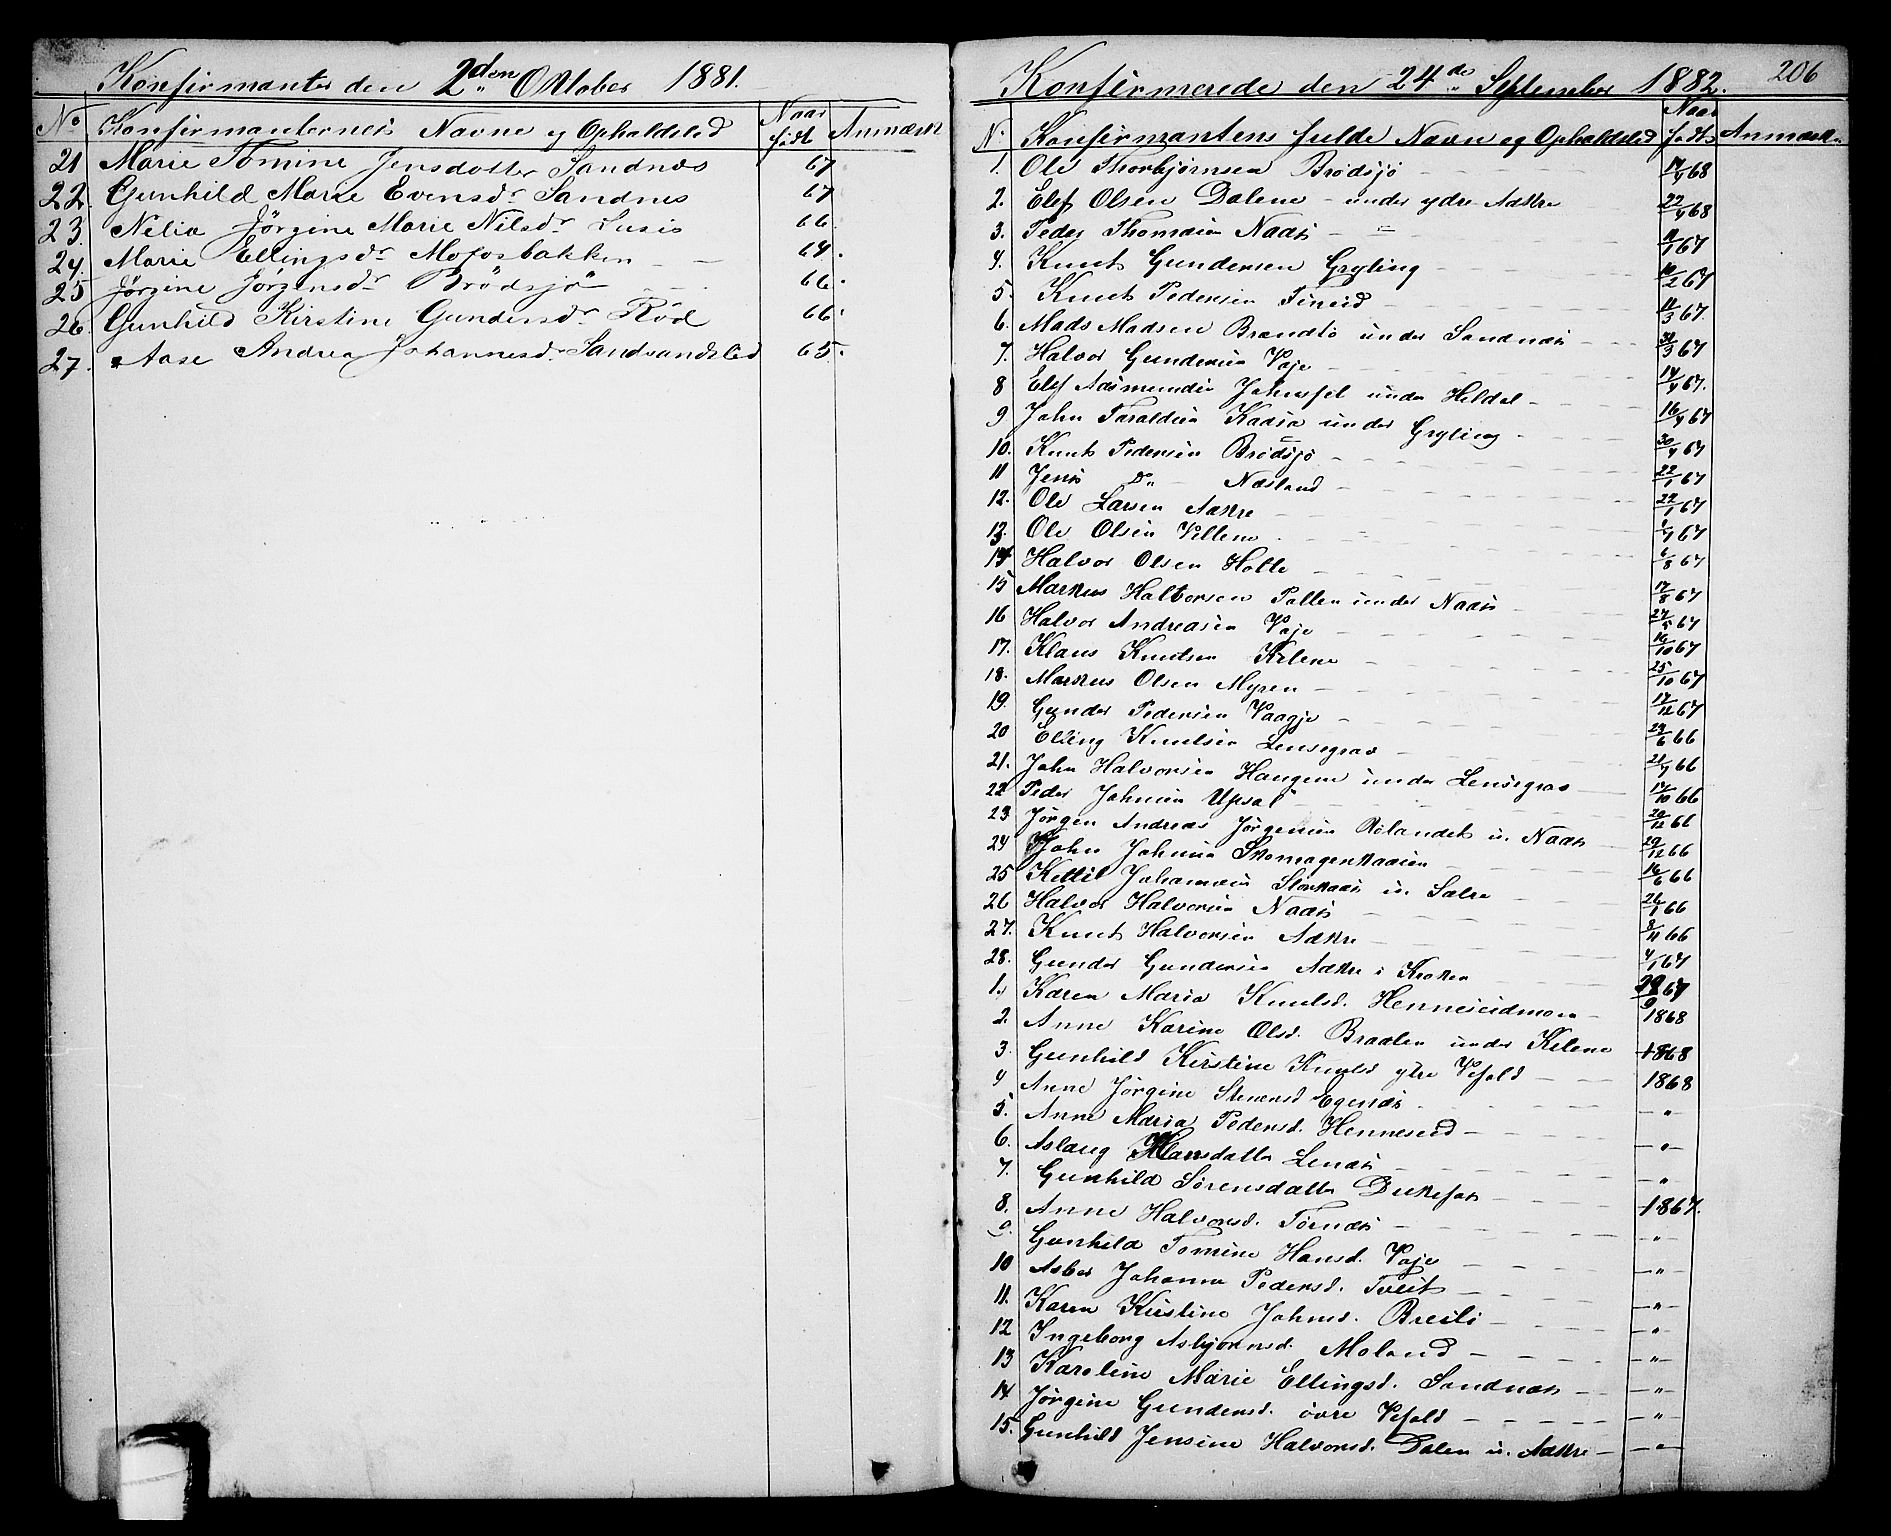 Konfirmanter den 2den Oktober 1881.
No Konfirmanternes Navne og Opholdsted Naar født Anmærk
21 Marie Tomine Jensdatter Sandnæs 67
22. Gunhild Marie Evensdr Sandnes 67
23. Nilia Jörgine Marie Nilsdr Lusis 66.
24. Marie Ellingsdr Mofosbakken 64.
25 Jörgine Jörgensdr Brödsjö 66.
26. Gunhild Kirstine Gundersdr Röd 66.
27. Aase Andrea Johannesd. Sandsandsled 65.
206
Konfirmerede den 24de September 1882.
N. Konfirmantens fulde Navn og Opholdsted Naar fødte Anmærk.
1. Ole Thorbjørnsen Brödsjö 14/4 68
2. Elef Olsen Dalene - under ydre Aakre 22/4 68
3. Peder Thomsen Naas 11/1 67
4. Knut Gundersen Gryting 10/2 67
5. Knut Pedersen Tineid 11/3 67.
6. Mads Madsen Brandtö under Sandnæs 30/3 67
7. Halvor Gundersen Vaje 14/4 67.
8 Elef Aasmundsen under Heldal 16/4 67
9 John Taraldsen Kaasa under Gryting 30/4 67
10. Knut Pedersen Brödsjö 22/1 67
11 Jens Do Næsland 22/1 67
12. Ole Larsen Aakre
13. Ole Olsen Vellene 67
14 Halvor Olsen Holte 6/8 67
15 Markus Halvorsen Pollen under Naas 17/8 67
16 Halvor Andreasen Vaje 67
17. Klaus Knutsen Kilene 16/10 67
18. Markus Olsen Myren 25/10 67
19. Gunder Pedersen Vaagje 17/12 67
20 Elling Knutsen Lensegrav 29/6 66
21. John Halvorsen Haugene under Lensegrav 21/7 66
22 Peder Johnsen Upsal 17/10 66
23 Jörgen Andreas Jörgensen Rölandet u. Naas 29/12 66
24 John Johnsen Skomagerkaasen 29/12 66
25 Kittil Johannsen Storkaas u. Salve 16/6 66
26 Halvor Halvorsen Naas 26/1 66
27. Knut Halvorsen Aakre 3/11 66
28. Gunder Gundersen Aakre i Kroken 4/1 67
1. Karen Maria Knutsd. Henneseidmoen 67
2. Anne Karine Olsd. Braaten under Kilene 1868
3. Gunhild Kirstine Knutsd ytre Vefald 1868
4 Anne Jörgine Stenersd Egenæs 1868
5. Anne Maria Pedersd. Henneseid "
6. Aslaug Hansdatter Lenæs "
7. Gunhild Sörensdatter "
8. Anne Halvorsd. Törnæs 1867.
9. Gunhild Tomine Hansd. Vaje "
10 Asber Johanne Pedersd. Tveit "
11. Karen Kirstine Johnsd. Breili "
12 Ingeborg Asbjørnsd. Moland "
13 Karoline Marie Ellingsd. Sandnæs "
14 Jörgine Gundersd. övre Vefald "
15. Gunhild Jensine Halvorsd. Dalen u. Aakre "